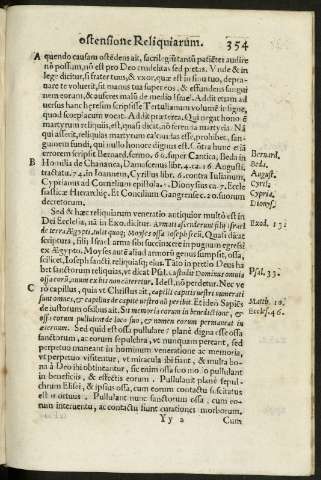 ostensione Reliquiarum. 354
A quendo causam ostēdens ait, sacrilegistantū patiēter audire
nō possum, nō est pro Deo crudelitas sed pietas. Vnde & in
lege dicitur, si frater tuus, & vxor, quæ est in sinu tuo, depra-
uare te voluerit, sit manus tua super eos, & effundens sangui
nem eorum, & auferes malū de medio Israel. Addit etiam ad
uersus hanc heresim scripsisse Tertulianum volumē insigne,
quod scorpiacum vocat. Addit præterea, Qui negat honorē
martyrum reliquiis, est, quasi dicat, nō ferenda martyria. Nā
qui asserit, reliquias martyrum calcandas esse, prohibet, san-
guinem fundi, qui nullo honore dignus est. Cōtra hunc etiā
errorem scripsit Bernard. sermo. 66. super Cantica, Beda in
B Homilia de Chananæa, Damascenus libr. 4. c. 16. Augusti,
tractatu. 74. in Ioannem, Cyrillus libr. 6. contra Iulianum,
Cyprianus ad Cornelium epistola. 2. Dionysius ca. 7. Eccle
siasticæ Hierarchię. Et Concilium Gangrense c. 20. suorum
decretorum.
Bernard,
Beda,
August.
Cyril.
Cypria.
Dionys.
Sed & hæc reliquiarum veneratio antiquior multo est in
Dei Ecclesia, nā in Exo. dicitur. Armati ascenderunt filij Israel
de terra Ægypti, tulit quoq; Moyses ossa Ioseph secū, Quasi dicat
scriptura, filij Israel arma sibi succinxere in pugnam egressi
ex Ægypto. Moyses autē aliud armorū genus sumpsit, ossa,
scilicet, Ioseph sancti reliquias, ei⁹. Tāto in pretio Deus ha
bet sanctorum reliquias, vt dicat Psal. Custodit Dominus omnia
ossa eorū, vnum ex his non conteretur, Idest, nō perdetur. Nec ve
C rō capillus, quia vt Christus ait, capilli capitis vestri numerati
sunt omnes, & capillus de capite vestro nō peribit. Et ideò Sapiēs
de iustorum ossibus ait. Sit memoria eorum in benedictione, &
ossa eorum pullulent de loco suo, & nomen eorum permaneat in
æternum. Sed quid est ossa pullulare? planè digna esse ossa
sanctorum, ac eorum sepulchra, vt nunquam pereant, sed
perpetuo maneant in hominum veneratione ac memoria,
vt perpetuò visitentur, vt miracula ibi fiant, & multa bo-
na à Deo ibi obtineantur, sic enim ossa suo modo pullulant
in beneficiis, & effectis eorum. Pullulauit planè sepul-
chrum Elisei, & ipsius ossa, cum eorum contactu suscitatus
est mortuus. Pullulant nunc sanctorum ossa, cum eo-
rum interuentu, ac contactu fiunt curationes morborum.
Exod. 13.
Psal. 33.
Matth. 10.
Eccles. 46.
Yy 2 Cum